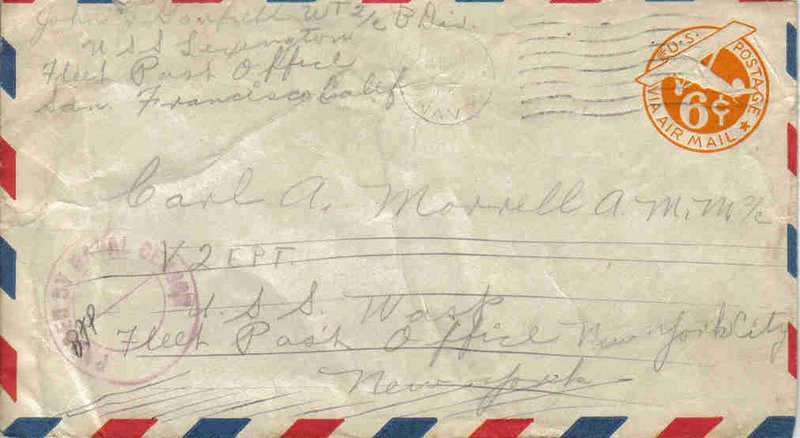 John
WT 2/c B Div.
USS Lexington
Fleet Post Office
San Francisco Calif
U.S. POSTAGE
VIA AIR MAIL
6¢
NAVY
Carl A. Morrell A.M.M. 2/c
V2
U.S.S. Wasp
Fleet Post Office New York City
New York
PASSED BY NAVAL CENSOR